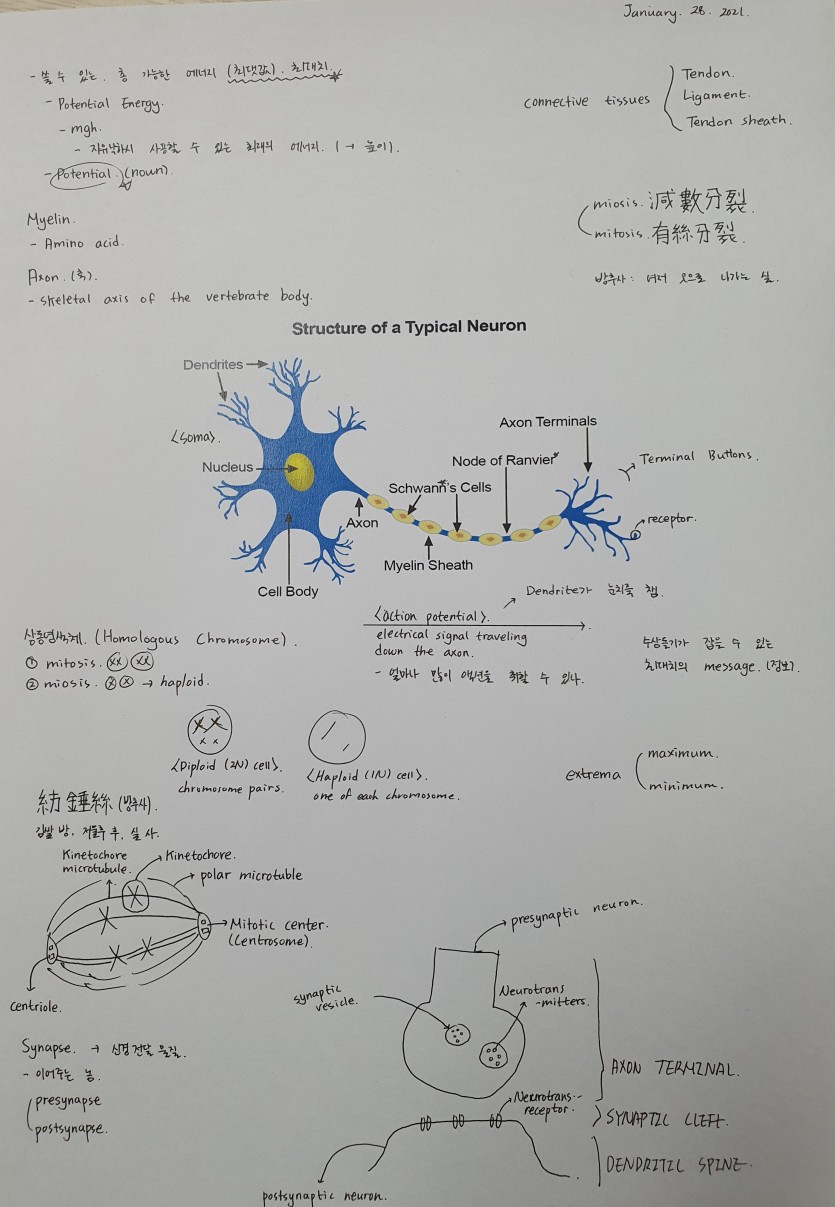 January. 28. 2021.
- 쓸 수 있는. 총 가능한 에너지 (최댓값). 최대치.
- Potential Energy.
- mgh.
- 자유낙하시 사용할 수 있는 최대의 에너지. (→ 높이).
- Potential. (noun).
connective tissues
Tendon.
Ligament.
Tendon sheath.
Myelin.
- Amino acid.
miosis. 減數分裂.
mitosis. 有絲分裂.
Axon. (축).
- skeletal axis of the vertebrate body.
방추사: 나가는 실.
Structure of a Typical Neuron
Dendrites
<Soma>.
Nucleus
Axon Terminals
Node of Ranvier
Terminal Buttons.
Schwann's Cells
Axon
receptor.
Myelin Sheath
Cell Body
Dendrite가 눈치를 챔.
<action potential>.
electrical signal traveling
down the axon.
- 얼마나 많이 액션을 취할 수 있나.
수상돌기가 잡을 수 있는
최대치의 message. (정보).
상동염색체. (Homologous Chromosome).
① mitosis.
② miosis. → haploid.
<Diploid (2N) cell>.
chromosome pairs.
<Haploid (1N) cell>.
one of each chromosome.
extrema
maximum.
minimum.
紡錘絲 (방추사).
길쌈 방, 저울추 추, 실 사.
Kinetochore
microtubule.
Kinetochore.
polar microtuble
Mitotic center.
(Centrosome).
centriole.
presynaptic neuron.
synaptic
vesicle.
Neurotrans
-mitters.
AXON TERMINAL.
Synapse. → 신경전달 물질.
- 이어주는 놈.
presynapse
postsynapse.
Neurotrans--
receptor.
SYNAPTIC CLEFT.
DENDRITIC SPINE.
postsynaptic neuron.